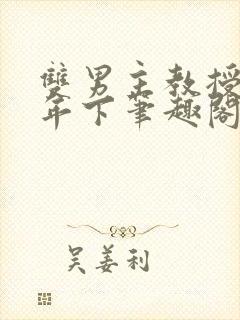 雙男主教授
年下筆趣閣
吴姜利